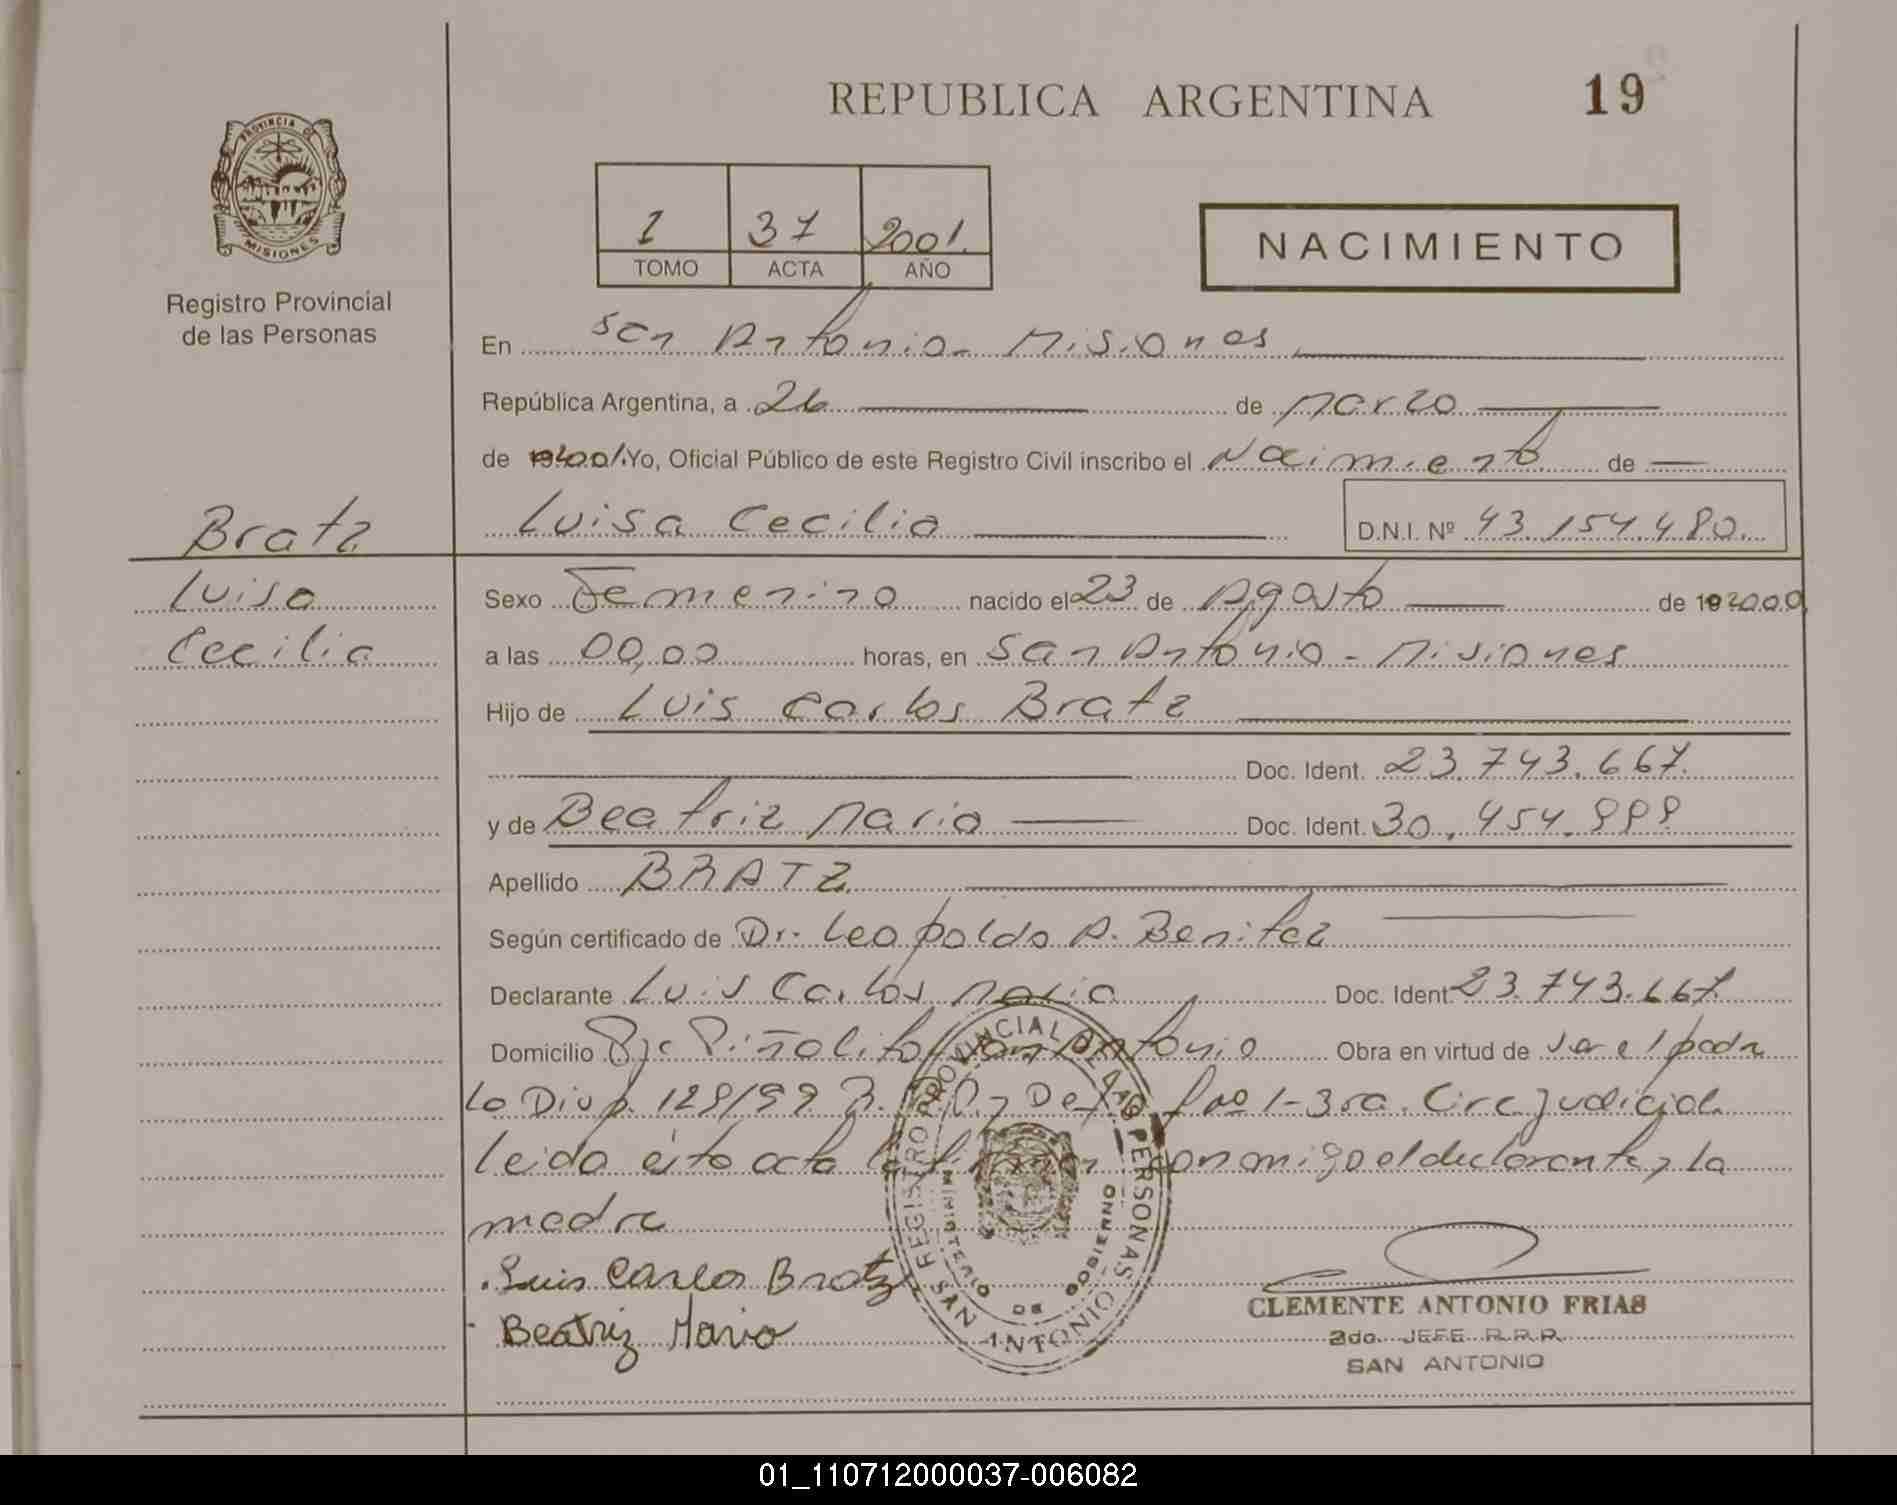 REPUBLICA ARGENTINA
19
PROVINCIA DE
MISIONES
Registro Provincial
de las Personas
1 37 2001.
TOMO ACTA AÑO
NACIMIENTO
En San Antonio - Misiones
República Argentina, a 26 de Marzo
de 2001. Yo, Oficial Público de este Registro Civil inscribo el Nacimiento de
Bratz
Luisa Cecilia D.N.I. Nº 43.154.480.
Luisa
Cecilia
Sexo Femenino nacido el 23 de Agosto de 2000
a las 00,00 horas, en San Antonio - Misiones
Hijo de Luis Carlos Bratz
Doc. Ident. 23.743.667.
y de Beatriz Maria Doc. Ident. 30.454.999
Apellido BRATZ
Según certificado de Dr. Leopoldo A. Benitez
Declarante Luis Carlos Maria Doc. Ident. 23.743.667.
Domicilio Piñalito San Antonio Obra en virtud de ser el padre
La Disp. 129/99 Def. 1-3ra. Circ. Judicial
leida esta acta la firman conmigo el declarante y la
madre
Luis Carlos Bratz
Beatriz Maria
REGISTRO PROVINCIAL DE LAS PERSONAS
MINISTERIO DE GOBIERNO
SAN ANTONIO
CLEMENTE ANTONIO FRIAS
2do. JEFE R.P.P.
SAN ANTONIO
01_110712000037-006082